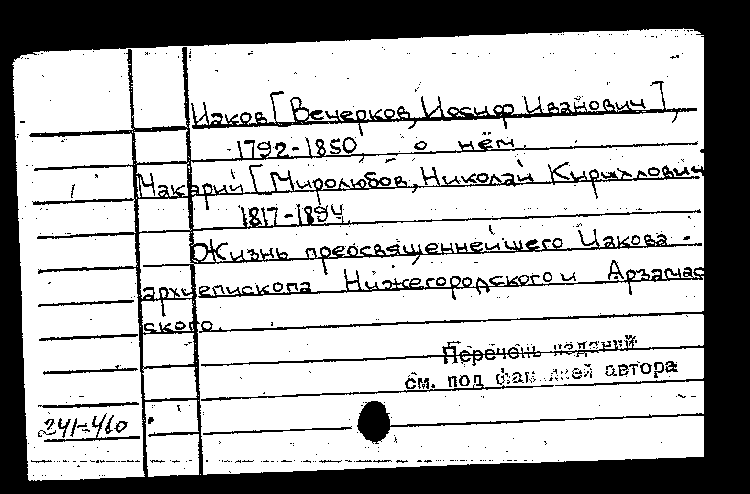 Иаков [Вечерков, Иосиф Иванович],
1792-1850, о нём.
Макарий [Миролюбов, Николай Кириллович
1817-1894.
Жизнь преосвященнейшего Иакова -
архиепископа Нижегородского и Арзамас
ского.
Перечень изданий
см. под фамилией автора
241-460